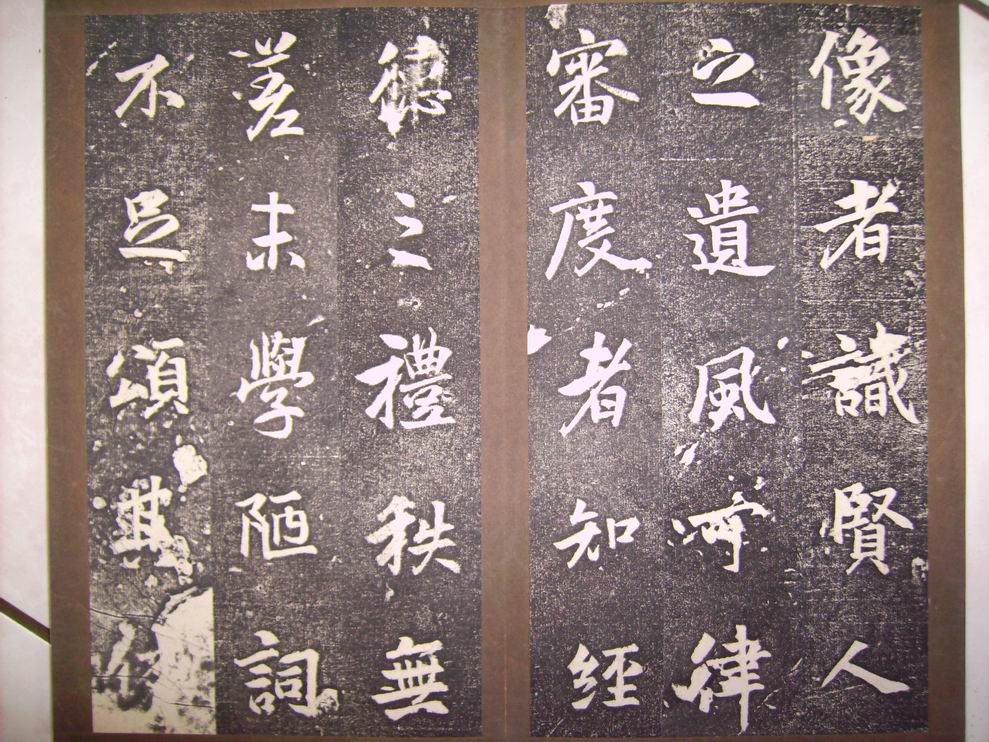 像者識賢人
之遺風律
審度者知經
德之禮秩無
差末學陋詞
不足頌其